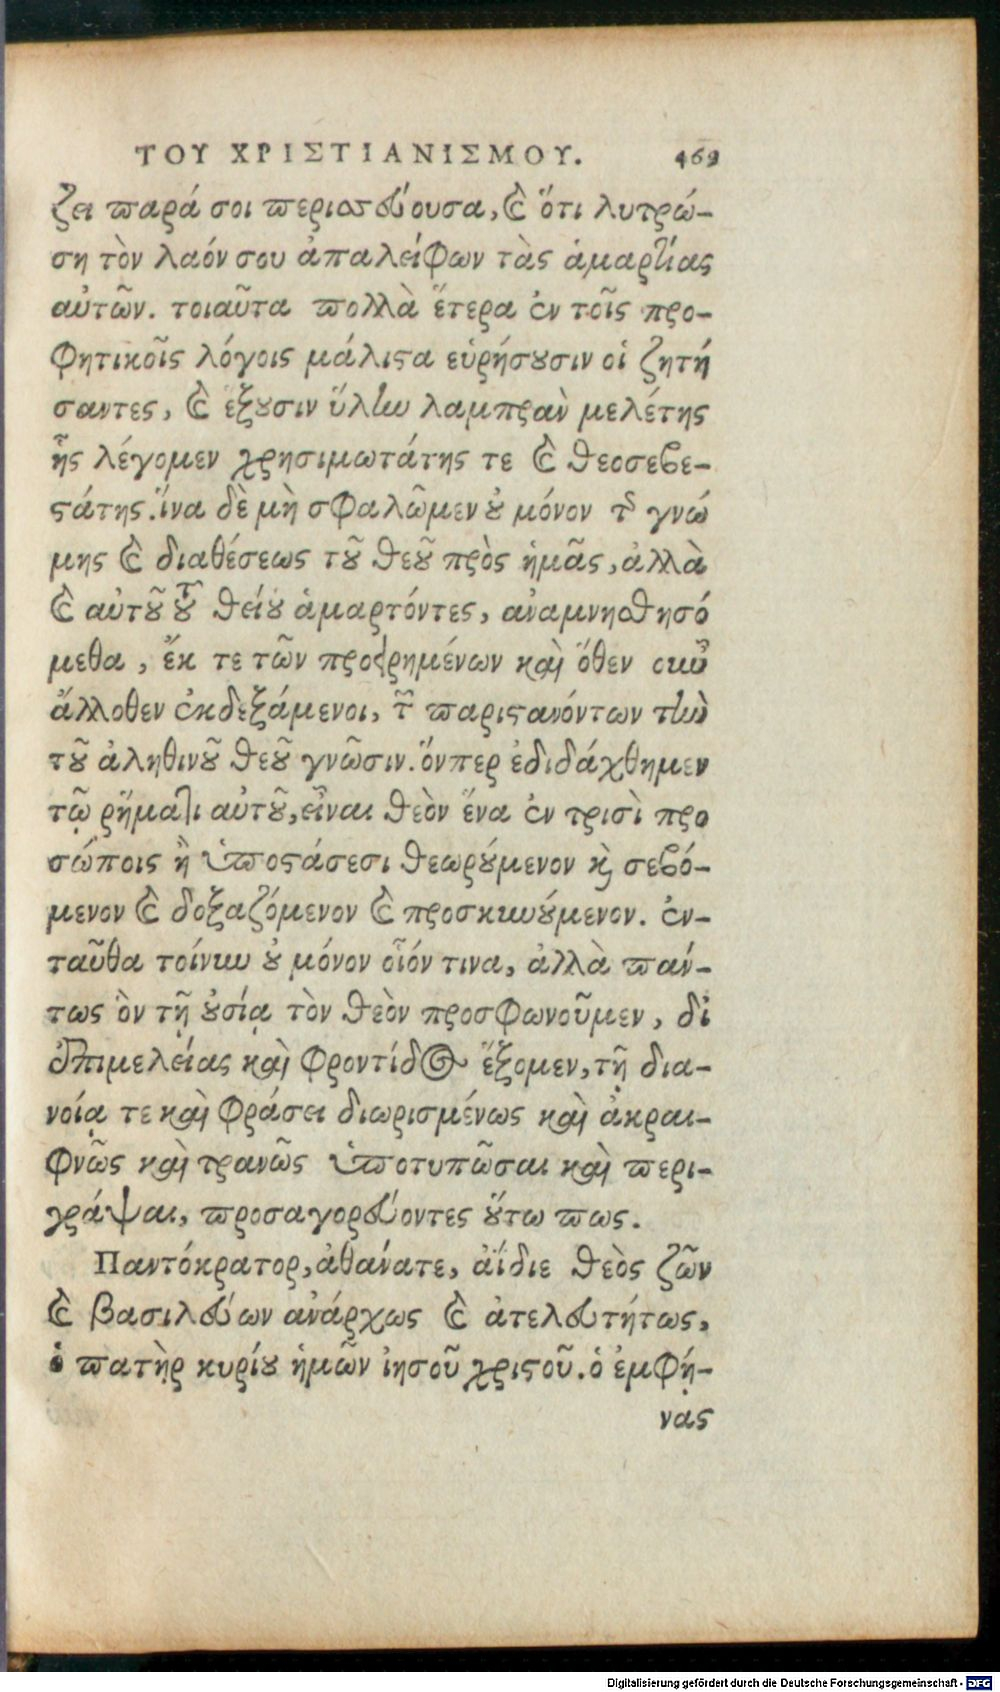 ΤΟΥ ΧΡΙΣΤΙΑΝΙΣΜΟΥ. 469
ζει παρά σοι περισσεύουσα, καὶ ὅτι λυτρώ-
ση τὸν λαόν σου ἀπαλείφων τὰς ἁμαρτίας
αὐτῶν. τοιαῦτα πολλὰ ἕτερα ἐν τοῖς προ-
φητικοῖς λόγοις μάλιστα εὑρήσουσιν οἱ ζητή
σαντες, καὶ ἕξουσιν ὕλην λαμπρὰν μελέτης
ἧς λέγομεν χρησιμωτάτης τε καὶ θεοσεβε-
στάτης. ἵνα δὲ μὴ σφαλῶμεν οὐ μόνον τῆς γνώ
μης καὶ διαθέσεως τοῦ θεοῦ πρὸς ἡμᾶς, ἀλλὰ
καὶ αὐτοῦ τοῦ θείου ἁμαρτόντες, ἀναμνησθησό
μεθα, ἔκ τε τῶν προειρημένων καὶ ὅθεν οὖν
ἄλλοθεν ἐκδεξάμενοι, τῶν παριστανόντων τὴν
τοῦ ἀληθινοῦ θεοῦ γνῶσιν. ὅνπερ ἐδιδάχθημεν
τῷ ῥήματι αὐτοῦ, εἶναι θεὸν ἕνα ἐν τρισὶ προ
σώποις ἢ ὑποστάσεσι θεωρούμενον καὶ σεβό-
μενον καὶ δοξαζόμενον καὶ προσκυνούμενον. ἐν-
ταῦθα τοίνυν οὐ μόνον οἷόν τινα, ἀλλὰ πάν-
τως ὂν τῇ οὐσίᾳ τὸν θεὸν προσφωνοῦμεν, δι
ἐπιμελείας καὶ φροντίδος ἕξομεν, τῇ δια-
νοίᾳ τε καὶ φράσει διωρισμένως καὶ ἀκραι-
φνῶς καὶ τρανῶς ὑποτυπῶσαι καὶ περι-
γράψαι, προσαγορεύοντες οὕτω πως.
Παντόκρατορ, ἀθάνατε, ἀΐδιε θεὸς ζῶν
καὶ βασιλεύων ἀνάρχως καὶ ἀτελευτήτως,
ὁ πατὴρ κυρίου ἡμῶν ἰησοῦ χριστοῦ. ὁ ἐμφή-
νας
Digitalisierung gefördert durch die Deutsche Forschungsgemeinschaft - DFG